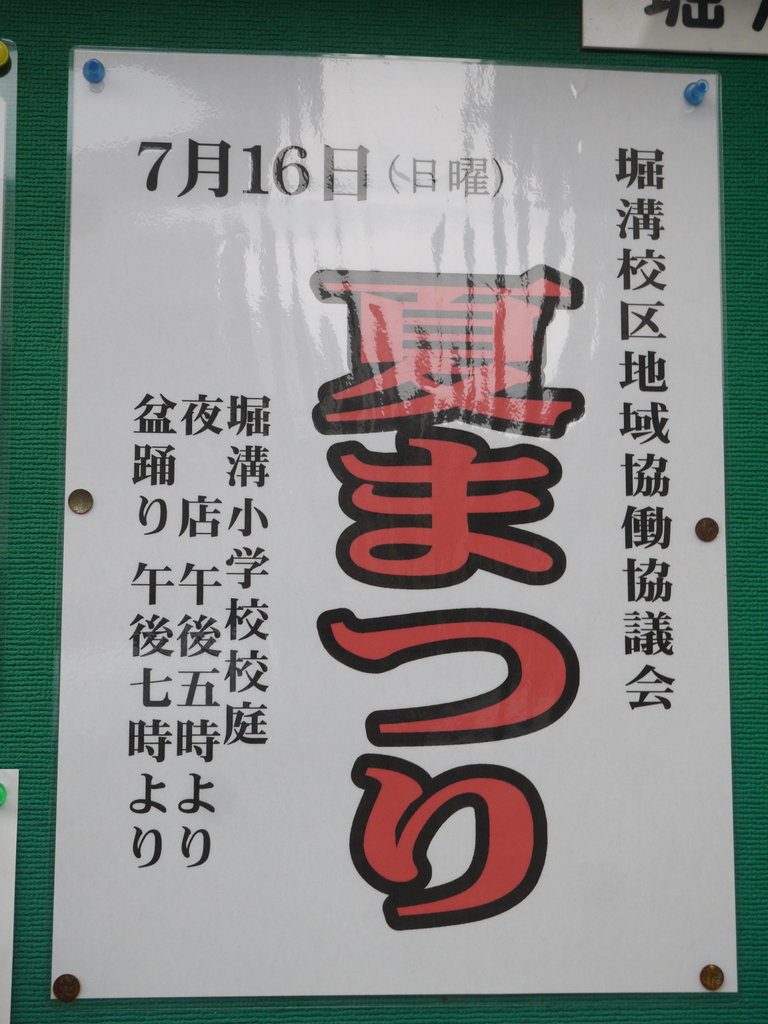 堀
7月16日（日曜）
堀溝校区地域協働協議会
夏まつり
堀溝小学校校庭
夜 店 午後五時より
盆踊り 午後七時より